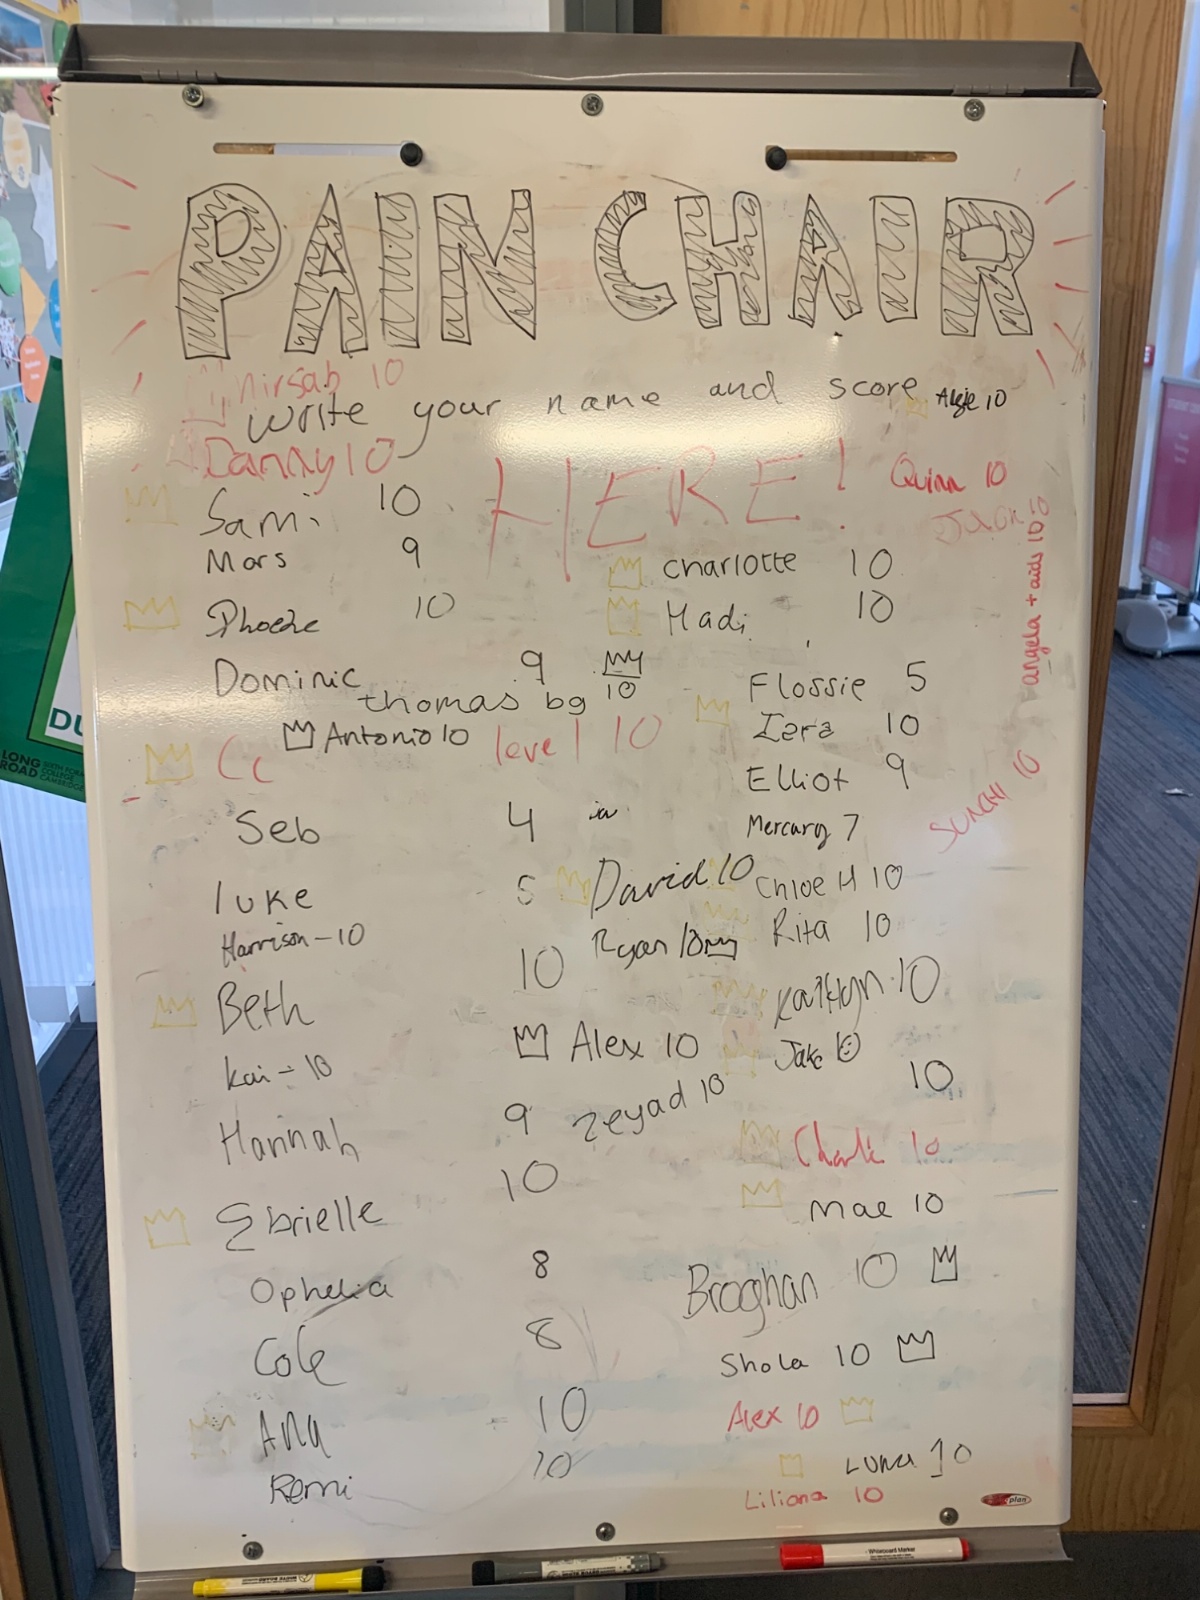 PAIN CHAIR
nirsab 10
write your name and score
Algie 10
Danny 10
HERE!
Quinn 10
Jack 10
angela + aids 10
Sami 10
Mars 9
Charlotte 10
Phoebe 10
Madi 10
Dominic 9
10
thomas bg
Flossie 5
Antonio 10
level 10
Cc
Izra 10
Elliot 9
Sunah 10
Seb 4
Mercury 7
luke 5
David 10
Chloe H 10
Harrison - 10
Ryan 10
Rita 10
Beth 10
Kaitlyn 10
Kai - 10
Alex 10
Jake 10
10
Hannah 9
Zeyad 10
Charlie 10
Ebrielle 10
Mae 10
Ophelia 8
Broghan 10
Cole 8
Shola 10
Ana 10
Alex 10
Remi 10
Luna 10
Liliana 10
plan
Whiteboard Marker
LONG ROAD
SIXTH FORM COLLEGE CAMBRIDGE
DU